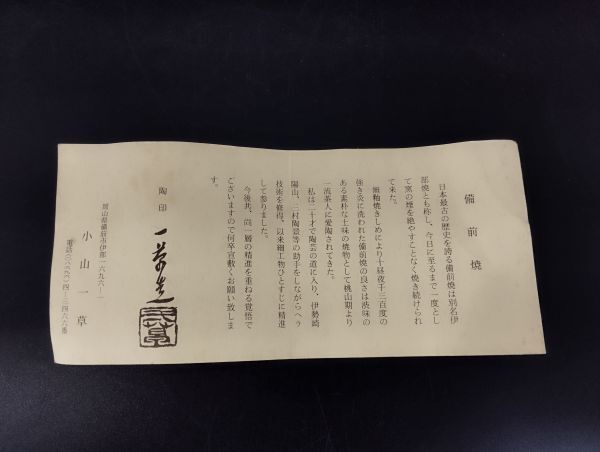 備前焼
日本最古の歴史を誇る備前焼は別名伊
部焼とも称し、今日に至るまで一度とし
て窯の煙を絶やすことなく焼き続けられ
て来た。
無釉焼きしめにより十昼夜千三百度の
強き炎に洗われた備前焼の良さは渋味の
ある素朴な土味の焼物として桃山期より
一流茶人に愛陶されてきた。
私は二十才で陶芸の道に入り、伊勢崎
陽山、二村陶景等の助手をしながらヘラ
技術を修得、以来細工物ひとすじに精進
して参りました。
今後共、尚一層の精進を重ねる覚悟で
ございますので何卒宜敷くお願い致しま
す。
陶印
一草造
岡山県備前市伊部一六九六ー一
小山一草
電話〇八六九六ー四ー三四六六番